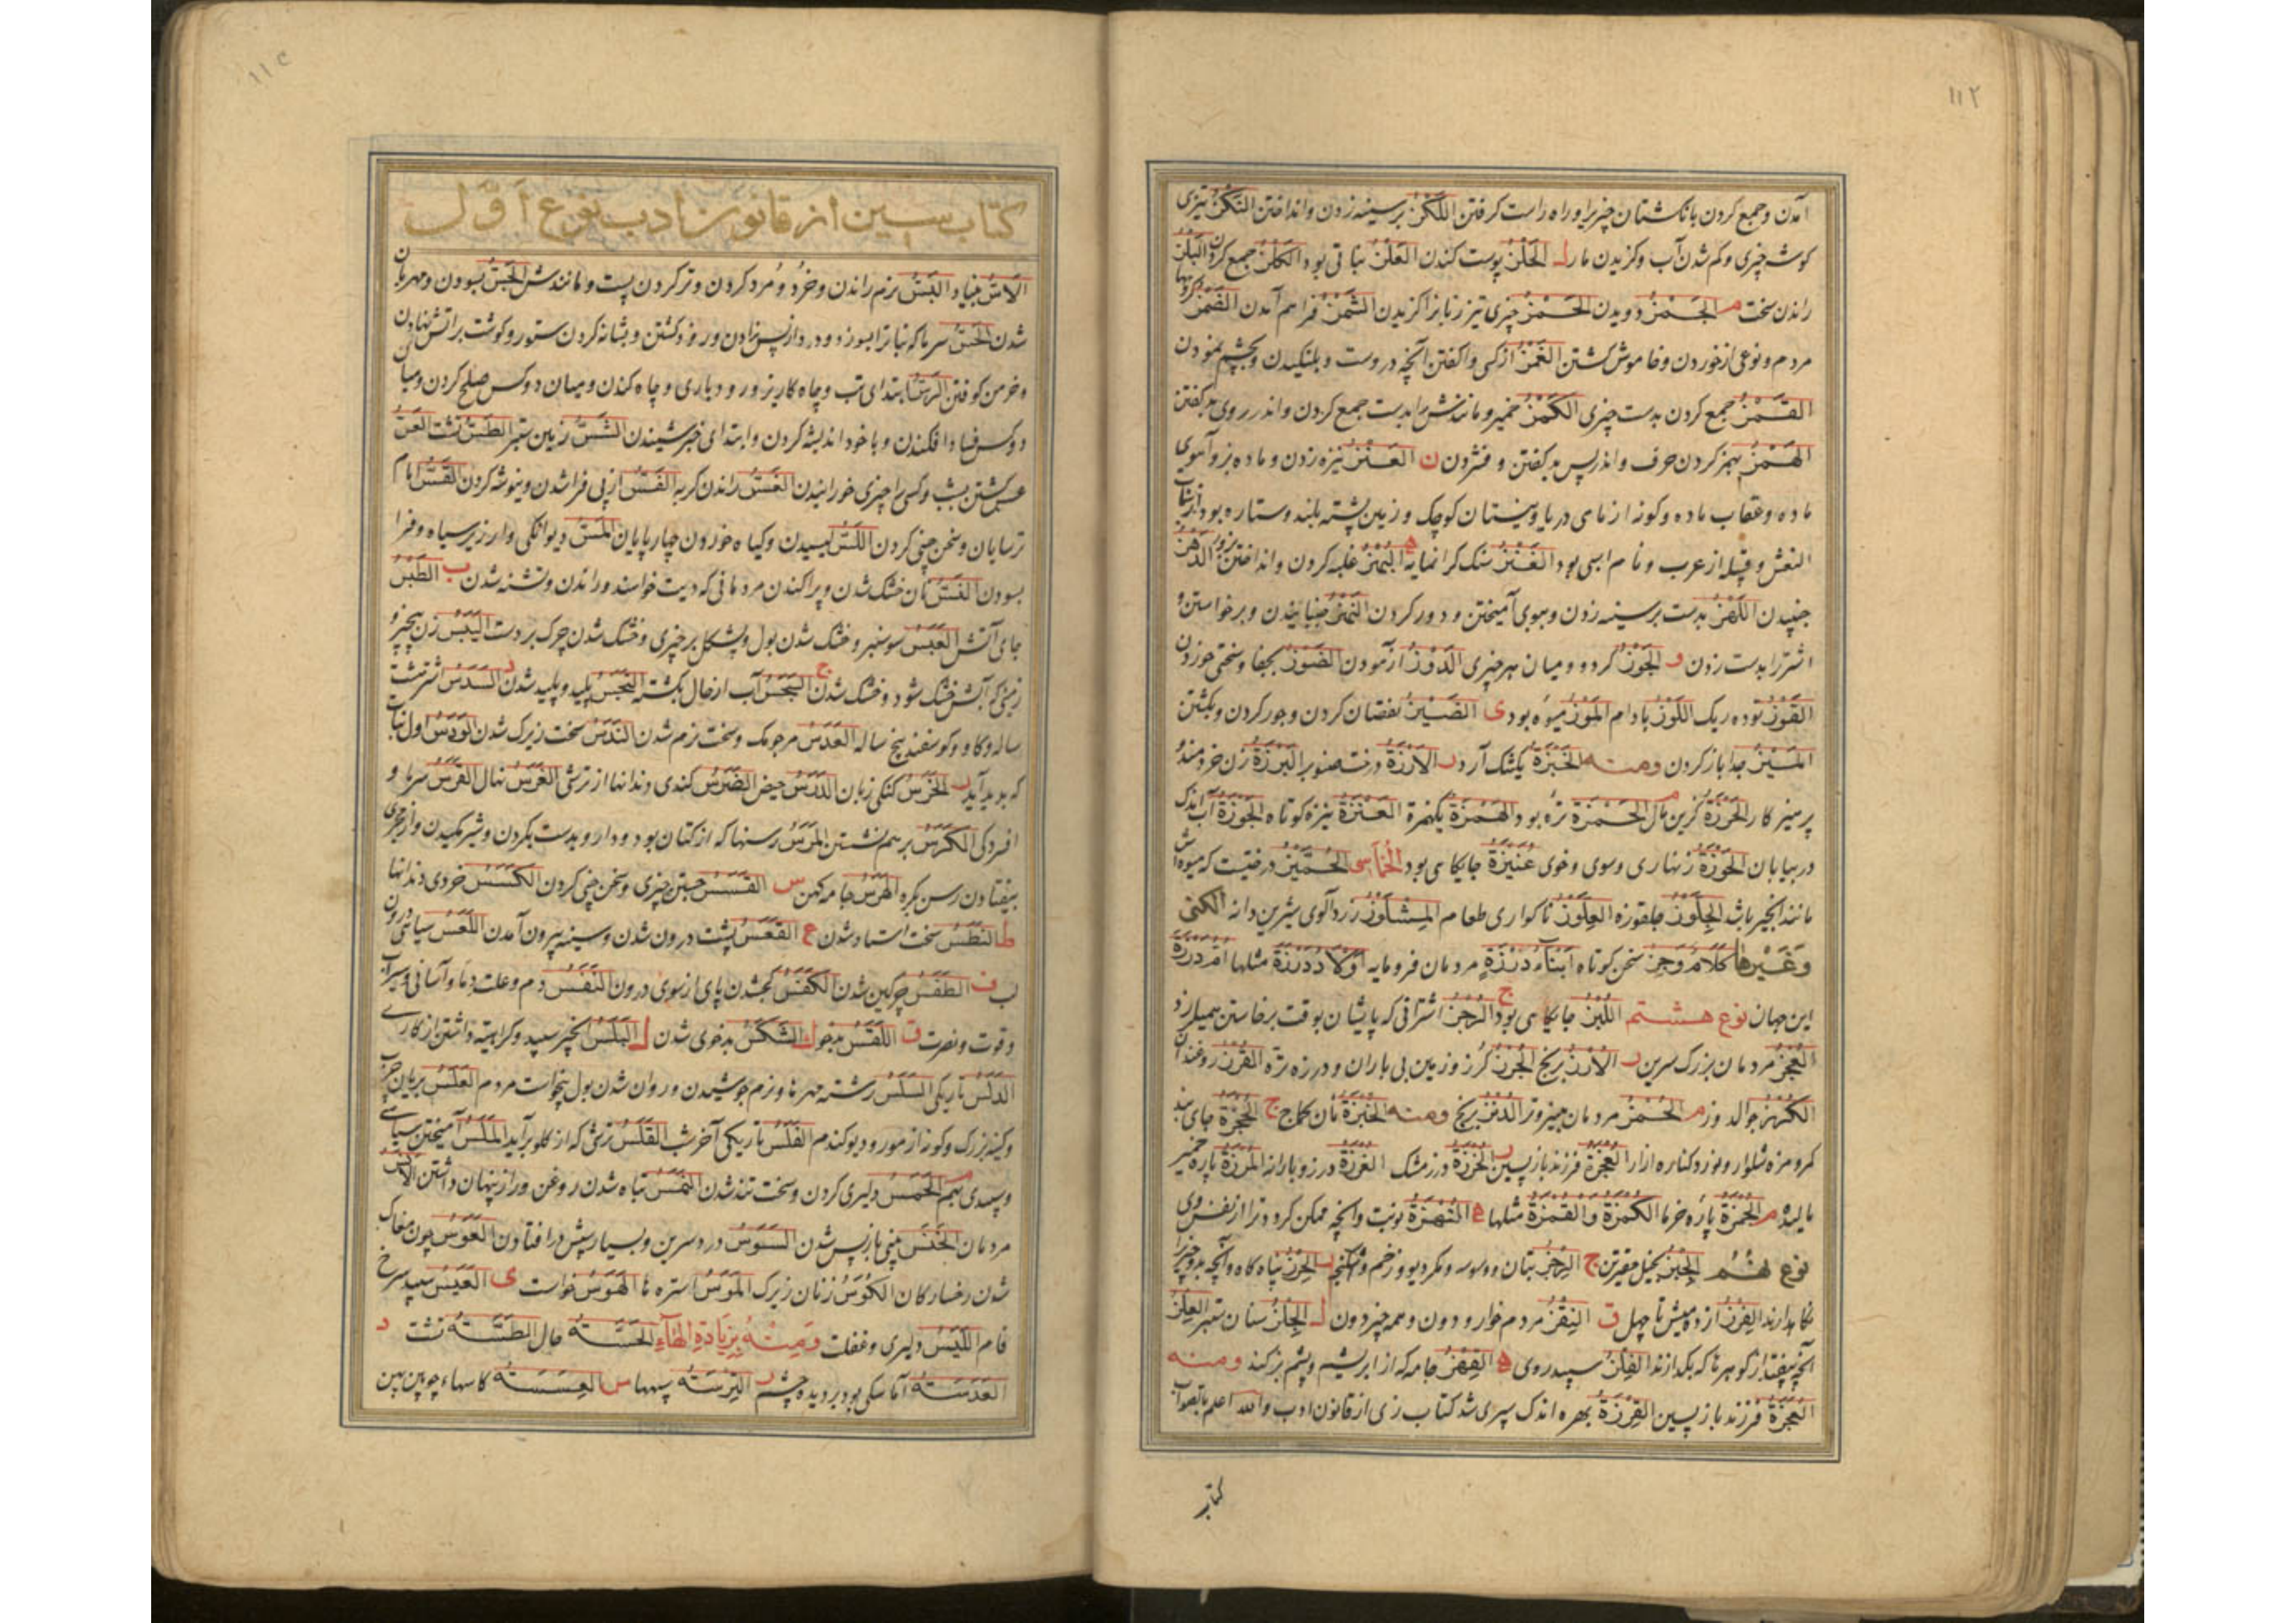 ۱۱۲
آمدن و جمع کردن بانکشتان چیزیرا و راه راست کرفتن اللَّکْزُ بر سینه زدن و انداختن النَّکْزُ تیزی
کوشه چیزی و کم شدن آب و کزیدن مار ل الحَلْزُ پوست کندن العَلْزُ نباتی بود الکَلْزُ جمع کردن
راندن سخت م الجَمْزُ دویدن الحَمْزُ چیزی تیز زبانرا کزیدن الشَّمْزُ فراهم آمدن الضَّمْزُ
مردم و نوعی از خوردن و خاموش کشتن الغَمْزُ از کسی واکفتن آنچه دروست و بلنکیدن و بچشم نمودن
القَمْزُ جمع کردن بدست چیزی الکَمْزُ خمیر و مانندش را بدست جمع کردن و اندر روی بد کفتن
الهَمْزُ بهمز کردن حرف و اندر پس بد کفتن و فشردن ن العَنْزُ نیزه زدن و ماده بز و آهوی
ماده و عقاب ماده و کونه از ماهی دریا و نیستان کوچک و زمین پشته بلند و ستاره بود از بنات
النعش و قبیله از عرب و نام اسبی بود الغَنْزُ سنک کرانمایه ه البَهْزُ غلبه کردن و انداختن
جنبیدن اللَّهْزُ بدست بر سینه زدن و بموی آمیختن و دور کردن النَّهْزُ جنبانیدن و برخواستن و
اشتررا بدست زدن و الجَوْزُ کردو و میان هر چیزی الرَّوْزُ آزمودن الضَّوْزُ بجفا و سختی خوردن
القَوْزُ توده ریک اللَّوْزُ بادام المَوْزُ میوه بود ی الضَّیْزُ نقصان کردن و جور کردن و بکشتن
المَیْزُ جدا باز کردن ومنه الخَبْزَةُ یکشک آرد ر الاَرْزَةُ درخت صنوبر البَرْزَةُ زن خردمند و
پرهیز کار الحَرْزَةُ کزین مال الحَمْزَةُ تره بود الهَمْزَةُ یکهمزة العَنْزَةُ نیزه کوتاه الجَوْزَةُ آب اندک
در بیابان الحَوْزَةُ زنهاری و سوی و خوی عُنَیْزَةُ جایکاهی بود الخُمَاسِی الجُمَّیْزُ درختیست که میوه اش
مانند انجیر باشد الجِلَّوْزُ جلقوزه العِلَّوْزُ ناکواری طعام المِشْلَوْزُ زردآلوی شیرین دانه الکُنَی
وَغَیْرِهَا کَلَامٌ وَجْزٌ سخن کوتاه اَبْنَاءُ دَرْزَةٍ مردمان فرومایه اَوْلَادُ دَرْزَةَ مثلها اُمُّ دَرْزَةَ
این جهان نوع هشتم اللُّبْزُ جایکاهی بود ج الرُّجْزُ اشترانی که پایشان بوقت برخاستن همیلرزد
العُجْزُ مردمان بزرک سرین ر الاُرْزُ برنج الجُرْزُ کرز و زمین بی باران و درزه تره القُرْزُ روغندان
الکُرْزُ جوالدوز م الحُمْزُ مردمان چیزوتر الرُّنْزُ برنج ومنه الخُبْزَةُ نان کماج ج الحُجْزَةُ جای بند
کمر و مزه شلوار و نورد کناره ازار العُجْزَةُ فرزند بازپسین ر الخُرْزَةُ درز مشک الغُرْزَةُ درز و بارانه المُرْزَةُ پاره خمیر
مالیده م الجُمْزَةُ پاره خرما الکُمْزَةُ و القُمْزَةُ مثلها ه النُّهْزَةُ نوبت و آنچه ممکن کردد ترا از نفس وی
نوع نهم الجِبْزُ بخیل حقیرتن ج الرِّجْزُ بتان و وسوسه و مکر دیو و زخم و شکنجه ر الحِرْزُ پناه کاه و آنچه بدو چیزرا
نکاه دارند الفِرْزُ از ده میش تا چهل ق النِّقْزُ مردم خوار و دون و همه چیز دون ل الجِلْزُ سنان ستبر العِلْزُ
آنچه بیفتد از کوهرها که بکدازند الفِلْزُ سپیدروی ه القِهْزُ جامه که از ابریشم و پشم بز کنند ومنه
العِجْزَةُ فرزند بازپسین الفِرْزَةُ بهره اندک سپری شد کتاب زی از قانون ادب والله اعلم بالصواب
کتاب
کتاب سین از قانون ادب نوع اوّل
الاَسُّ بنیاد البَسُّ نرم راندن و خرد و مرد کردن و تر کردن پست و مانندش الجَسُّ بسودن و مهربان
شدن الحَسُّ سرما که نباترا بسوزد و درد از پس زادن و ر و کشتن و بشانه کردن ستور و کوشت بر آتش نهادن
و خرمن کوفتن الرَّسُّ ابتدای تب و چاه کاریز و رود باری و چاه کندن و میان دو کس صلح کردن و میان
دو کس فساد افکندن و با خود اندیشه کردن و ابتدای خبر شنیدن الشَّسُّ زمین ستبر الطَّسُّ تشت العَسُّ
عسس کشتن بشب و کسی را چیزی خورانیدن الغَسُّ راندن کربه الفَسُّ از پی فرا شدن و بنوشه کردن القَسُّ امام
ترسایان و سخن چینی کردن اللَّسُّ لیسیدن و کیاه خوردن چهارپایان المَسُّ دیوانکی و ارزیز سیاه و فرا
بسودن النَّسُّ نان خشک شدن و پراکندن مردمانی که دیت خواستند و راندن و تشنه شدن ب الطَّبَسُ
جای آتش العَبَسُ سوسنبر و خشک شدن بول و پشکل بر چیزی و خشک شدن چرک بر دست الیَبَسُ زن بیچیز و
زمینی که آبش خشک شود و خشک شدن ج البَجَسُ آب از حال بکشته النَّجَسُ پلید و پلید شدن د السَّدَسُ اشتر شش
ساله و کاو و کوسفند پنج ساله العَدَسُ مرجومک و سخت نرم شدن النَّدَسُ سخت زیرک شدن الوَدَسُ اول نبات
که پدید آید ر الخَرَسُ کنکی زبان الدَّرَسُ حیض الضَّرَسُ کندی دندانها از ترشی الغَرَسُ نهال القَرَسُ سرما و
افسردکی الکَرَسُ بر هم نشستن المَرَسُ رسنها که از کتان بود و دارو بدست بکردن و شیر مکیدن و از مجری
بیفتادن رسن بکره الهَرَسُ جامه کهن س القَسَسُ جستن چیزی و سخن چینی کردن الکَسَسُ خردی دندانها
ط النَّطَسُ سخت استاد شدن ع القَعَسُ پشت درون شدن و سینه بیرون آمدن اللَّعَسُ سیاهی درون
لب ف الطَّفَسُ چرکین شدن الکَفَسُ کج شدن پای از سوی درون النَّفَسُ دم و علت دِما و آسانی و سیرآب
و قوت و نصرت ق اللَّقَسُ بدخو ک الشَّکَسُ بدخوی شدن ل البَلَسُ انجیر سپید و کراهیة داشتن از کاری
الدَّلَسُ تاریکی السَّلَسُ رشته مهرها و نرم جوشیدن و روان شدن بول بنخواست مردم العَلَسُ بریان چرب
و کنه بزرک و کونه از مور و دیو کندم الغَلَسُ تاریکی آخر شب القَلَسُ ترشی که از کلو برآید المَلَسُ آمیختن سیاهی
و سپیدی بهم م الحَمَسُ دلیری کردن و سخت تند شدن النَّمَسُ تباه شدن روغن و راز پنهان داشتن ن الاَنَسُ
مردمان الخَنَسُ بینی بازپس شدن السَّوَسُ درد سرین و بسیار سپش در افتادن العَوَسُ چون مغاک
شدن رخسارکان الکُوَسُ زنان زیرک المَوَسُ استره ها الهَوَسُ خواست ی العَیَسُ سپید سرخ
فام اللَّیَسُ دلیری و غفلت وَمِنْهُ بِزِیَادَةِ الْهَاءِ الحَسَّةُ حال الطَّسَّةُ تشت د
العَدَسَةُ آماسکی بود بر دیده چشم ر التِّرَسَةُ سپرها س العِسَسَةُ کاسهاء چوبین